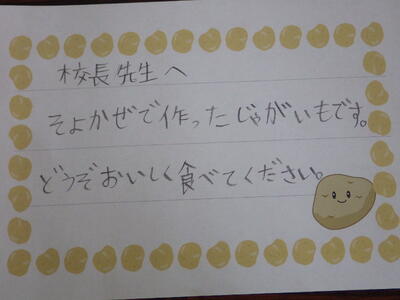 校長先生へ
そよかぜで作ったじゃがいもです。
どうぞおいしく食べてください。